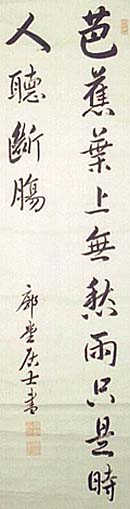 芭蕉葉上無愁雨只是時
人聽斷腸
廓堂居士書